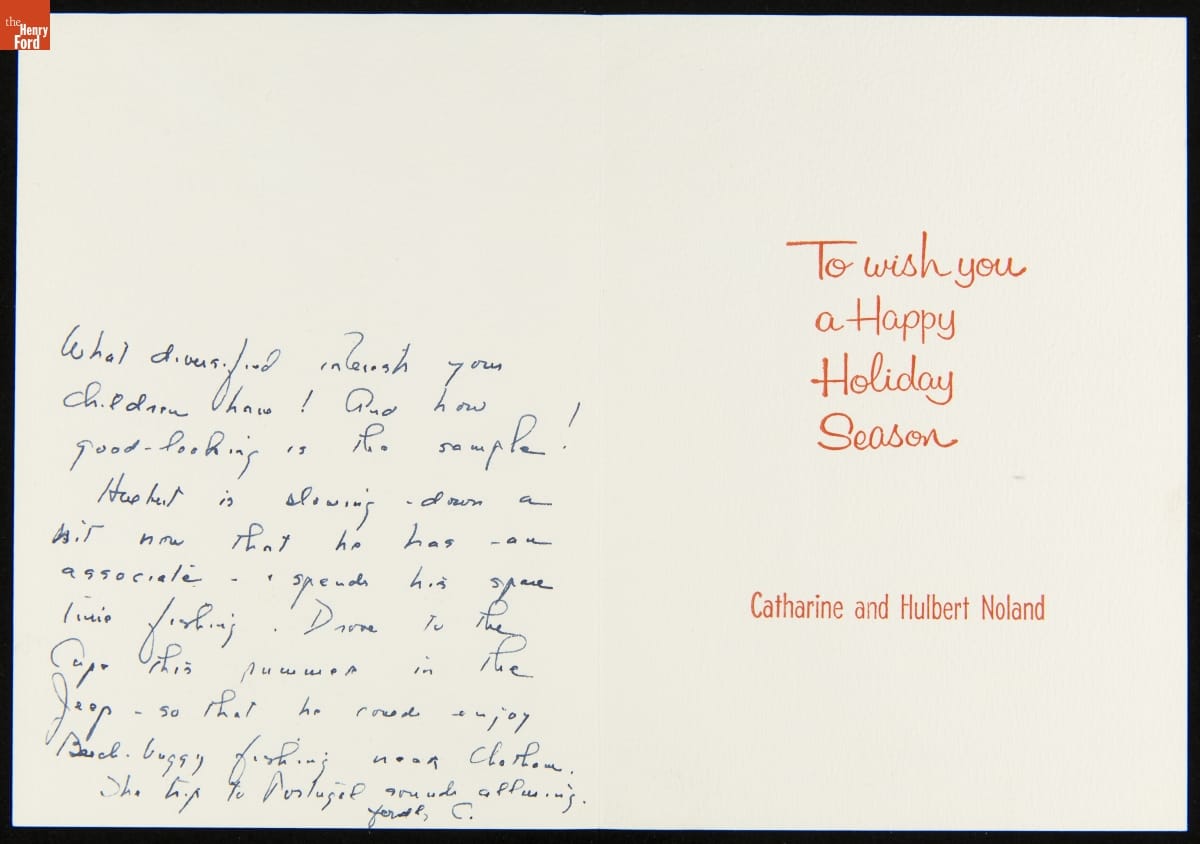 the
Henry
Ford
What diversified interests your
children have! And how
good-looking is the sample!
Hulbert is slowing-down a
bit now that he has -an
associate - & spends his spare
time fishing. Drove to the
Cape this summer in the
Jeep - so that he could enjoy
Beach-buggy fishing near Chatham.
The trip to Portugal sounds alluring.
C.
To wish you
a Happy
Holiday
Season
Catharine and Hulbert Noland